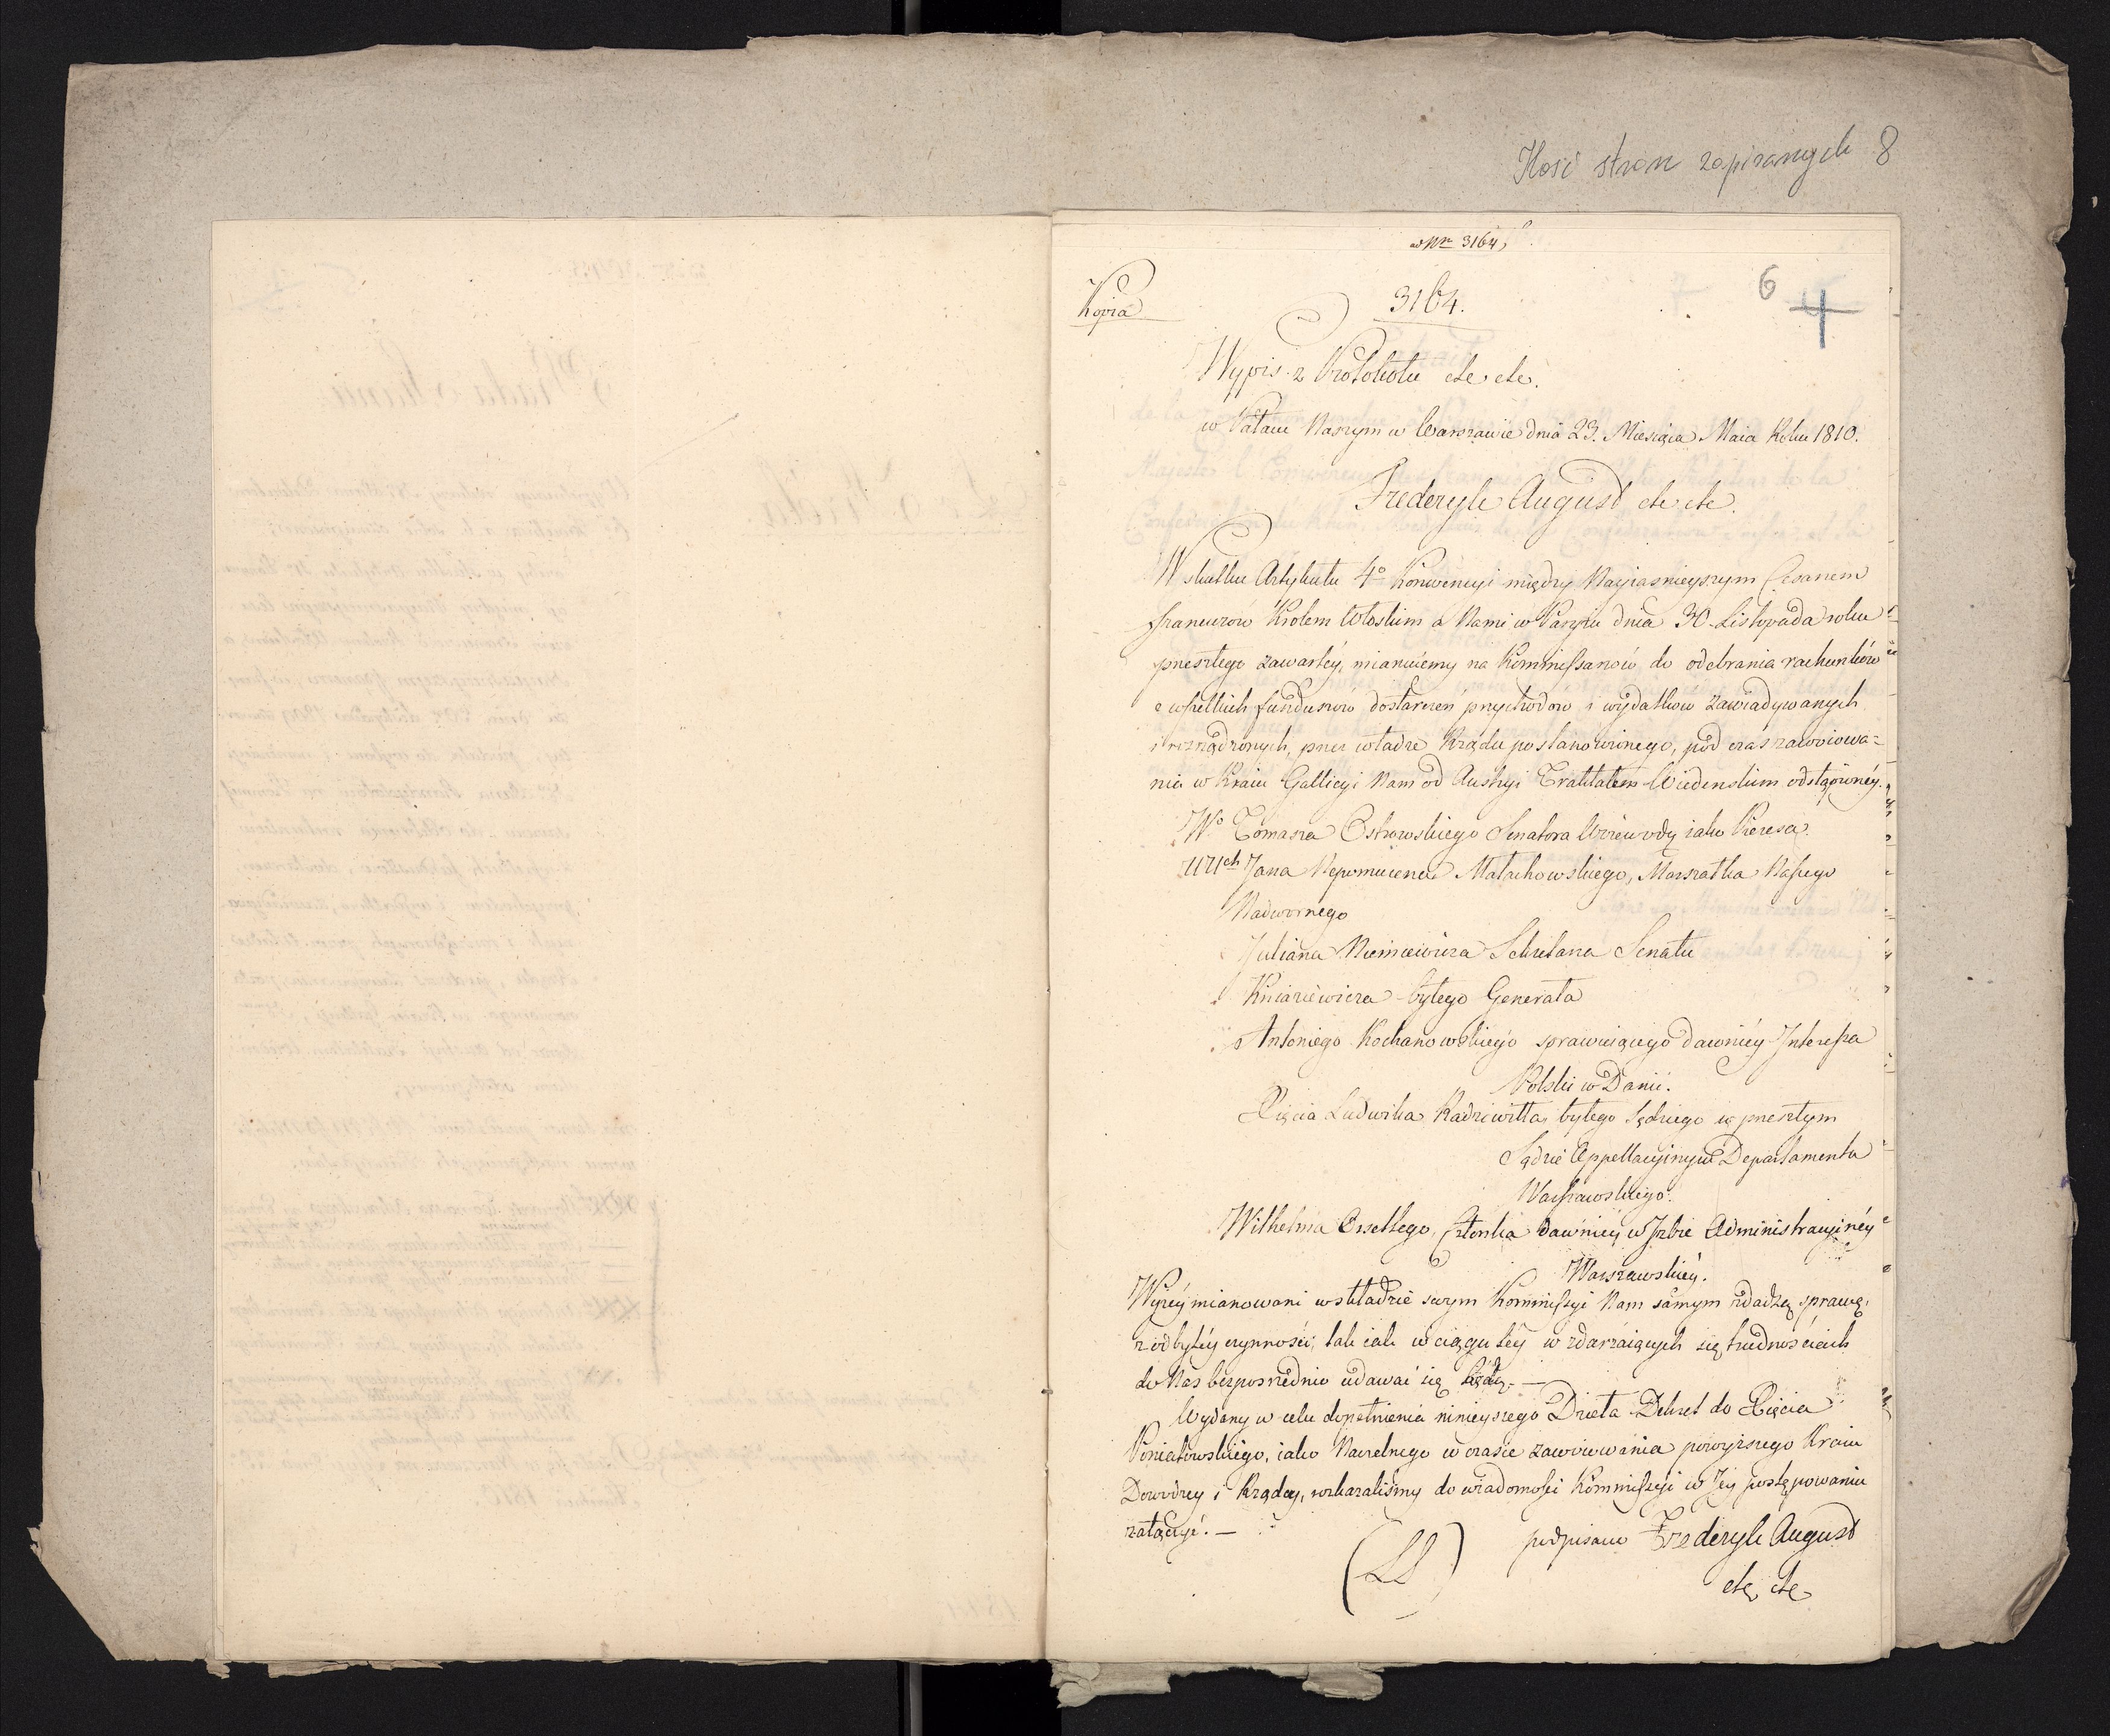 Ilość stron zapisanych 8
ad Nr 3164
6
4
Kopia
3164.
Wypis z Protokołu etc etc.
w Pałacu Naszym w Warszawie dnia 23. Miesiąca Maia Roku 1810.
Fryderyk August etc etc.
W skutku Artykułu 4º Konwencyi między Nayiasnieyszym Cesarzem
francuzów Królem Włoskim a Nami w Paryżu dnia 30. Listopada roku
przeszłego zawartéy, mianuiemy na Kommissarzów do odebrania rachunków
z wszelkich funduszów dostarczeń przychodów i wydatków zawiadywanych
i rozrządzonych, przez władze Rządu postanowionego, pod czas zawoiowa=
nia w Kraiu Gallicyi Nam od Austryi Traktatem Wiedenskim odstąpionéy.
Wº Tomasza Ostrowskiego Senatora Woiewodę iako Prezesa.
UUch Jana Nepomucena Małachowskiego, Marszałka Naszego
Nadwornego
Juliana Niemcewicza Sekretarza Senatu
Kniaziewicza byłego Generała
Antoniego Kochanowskiego sprawuiącego dawniéy Interessa
Polski w Danii.
Xięcia Ludwika Radziwiłła, byłego Sędziego w przeszłym
Sądzie Appellacyinym Departamentu
Warszawskiego.
Wilhelma członka dawniéy w Izbie Administracyinéy
Warszawskiéy.
Wyżéy mianowani w składzie swym Kommissyi Nam samym zdadzą sprawę,
z odbytéy czynności, tak iak w ciągu téy w zdarzaiących się trudnościach
do Nas bezpośrednio udawać się będą. —
Wydany w celu dopełnienia ninieyszego Dzieła Dekret do Xięcia
Poniatowskiego, iako Naczelnego w czasie zawoiowania powyższego Kraiu
Dowódzcy i Rządcy, rozkazaliśmy do wiadomości Kommissyi w Jey postępowaniu
załączyć. —
(LS) podpisano Fryderyk August
etc etc